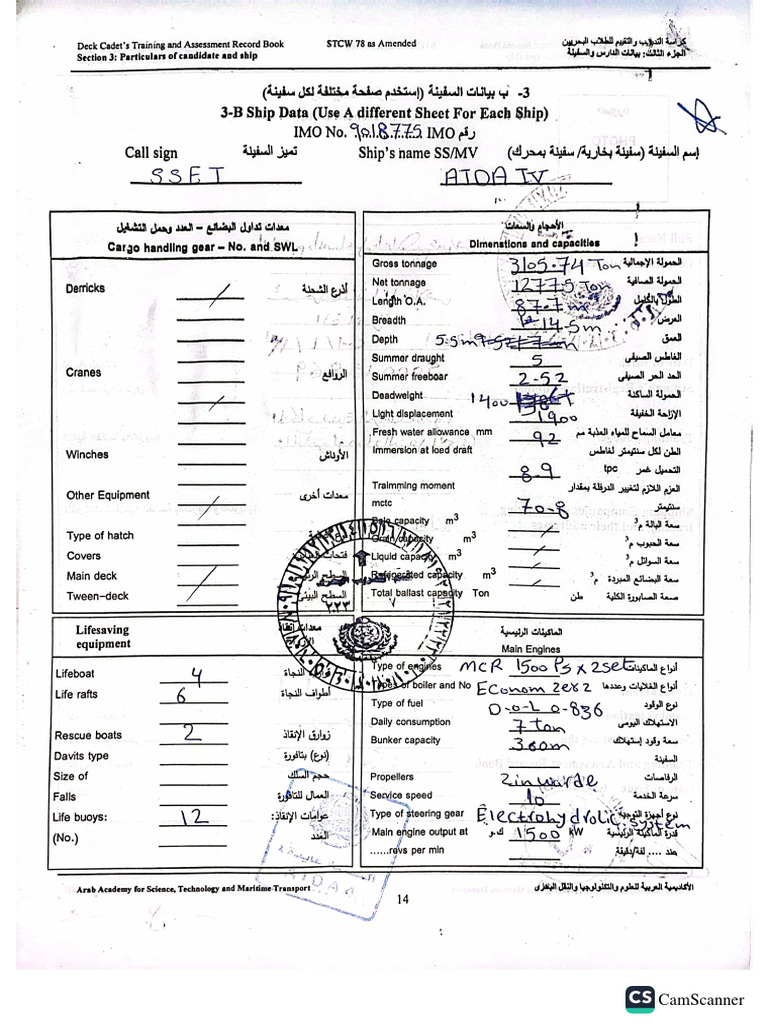 Deck Cadet's Training and Assessment Record Book STCW 78 as Amended كراسة التدريب والتقييم للطلاب البحريين
Section 3: Particulars of candidate and ship الجزء الثالث: بيانات الدارس والسفينة
3- ب بيانات السفينة (إستخدم صفحة مختلفة لكل سفينة)
3-B Ship Data (Use A different Sheet For Each Ship)
IMO No. 9018775 IMO رقم
Call sign تميز السفينة Ship's name SS/MV إسم السفينة (سفينة بخارية/ سفينة بمحرك)
SSET AIDA IV
معدات تداول البضائع – العدد وحمل التشغيل
Cargo handling gear – No. and SWL
Derricks أذرع الشحنة
Cranes الروافع
Winches الأوناش
Other Equipment معدات أخرى
Type of hatch
Covers
Main deck
Tween-deck
الأحجام والسعات
Dimenstions and capacities
Gross tonnage 3105.74 Ton الحمولة الإجمالية
Net tonnage 1277.5 Ton الحمولة الصافية
Length O.A. 87.7 m الطول بالكامل
Breadth 14.5m العرض
Depth 5.5m العمق
Summer draught 5 الغاطس الصيفى
Summer freeboar 2-52 الحد الحر الصيفى
Deadweight 1400 الحمولة الساكنة
Light displacement 1900 الإزاحة الخفيفة
Fresh water allowance mm 92 معامل السماح للمياه العذبة مم
Immersion at load draft الطن لكل سنتيمتر لغاطس
8.9 tpc التحميل غمر
Traimming moment العزم اللازم لتغيير الدرفلة بمقدار
mctc 70.8 سنتيمتر
Bale capacity m³ سعة البالة م³
Grain capacity m³ سعة الحبوب م³
Liquid capacity m³ سعة السوائل م³
Refrigerated capacity m³ سعة البضائع المبردة م³
Total ballast capacity Ton سعة الصابورة الكلية طن
Lifesaving
equipment
Lifeboat 4
Life rafts 6 أطواف النجاة
Rescue boats 2 زوارق الإنقاذ
Davits type (نوع) بتافورة
Size of
Falls
Life buoys: 12 عوامات الإنقاذ:
(No.) العدد
الماكينات الرئيسية
Main Engines
Type of engines MCR 1500 Ps x 2set أنواع الماكينات
Types of boiler and No أنواع الغلايات وعددها
Type of fuel نوع الوقود
Daily consumption 7 ton الاستهلاك اليومى
Bunker capacity سعة وقود إستهلاك
السفينة
Propellers 2inwarde الرفاصات
Service speed 10 سرعة الخدمة
Type of steering gear Electrohydrolic system نوع أجهزة التوجيه
Main engine output at 1500 kW ك.و قدرة الماكينة الرئيسية
......revs per min عند .... لفة/دقيقة
Arab Academy for Science, Technology and Maritime Transport الأكاديمية العربية للعلوم والتكنولوجيا والنقل البحرى
14
CS CamScanner